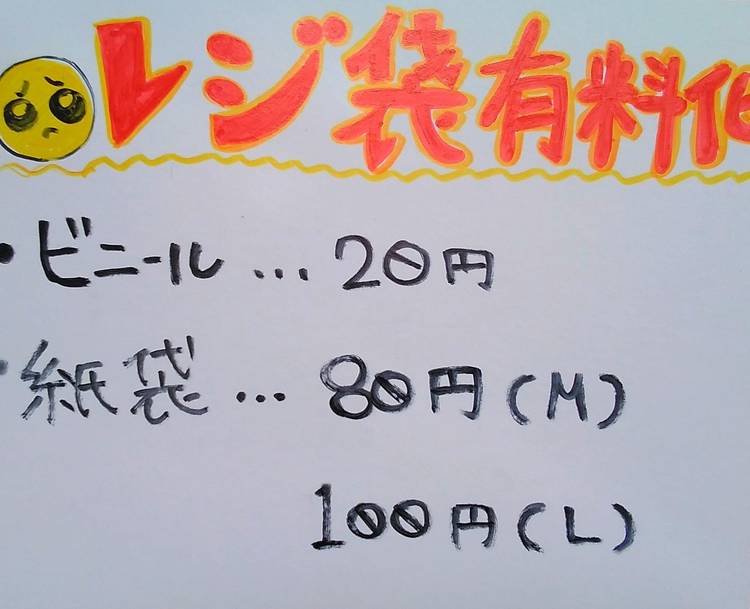 レジ袋有料化
・ビニール…20円
・紙袋…80円(M)
100円(L)